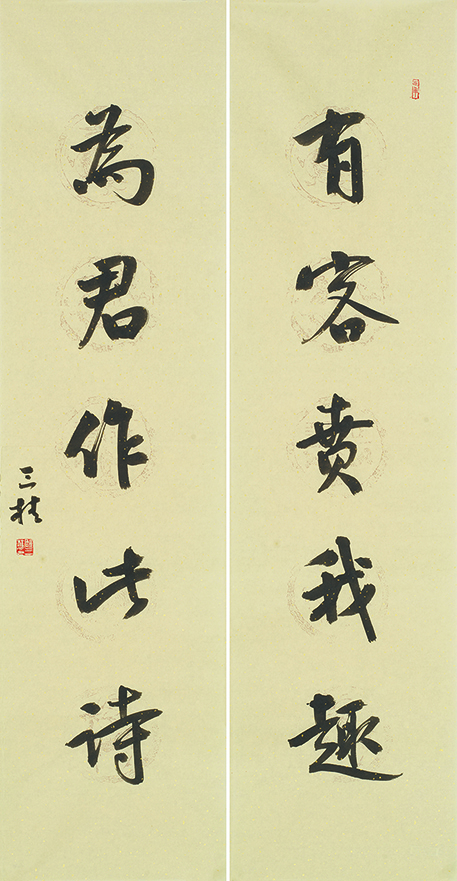 有客賁我趣
為君作此诗
三